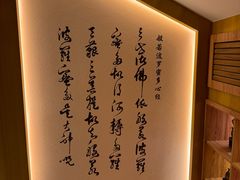 般若波罗蜜多心经
三世诸佛依般若波罗
蜜多故得阿耨多罗
三藐三菩提故知般若
波罗蜜多是大神咒